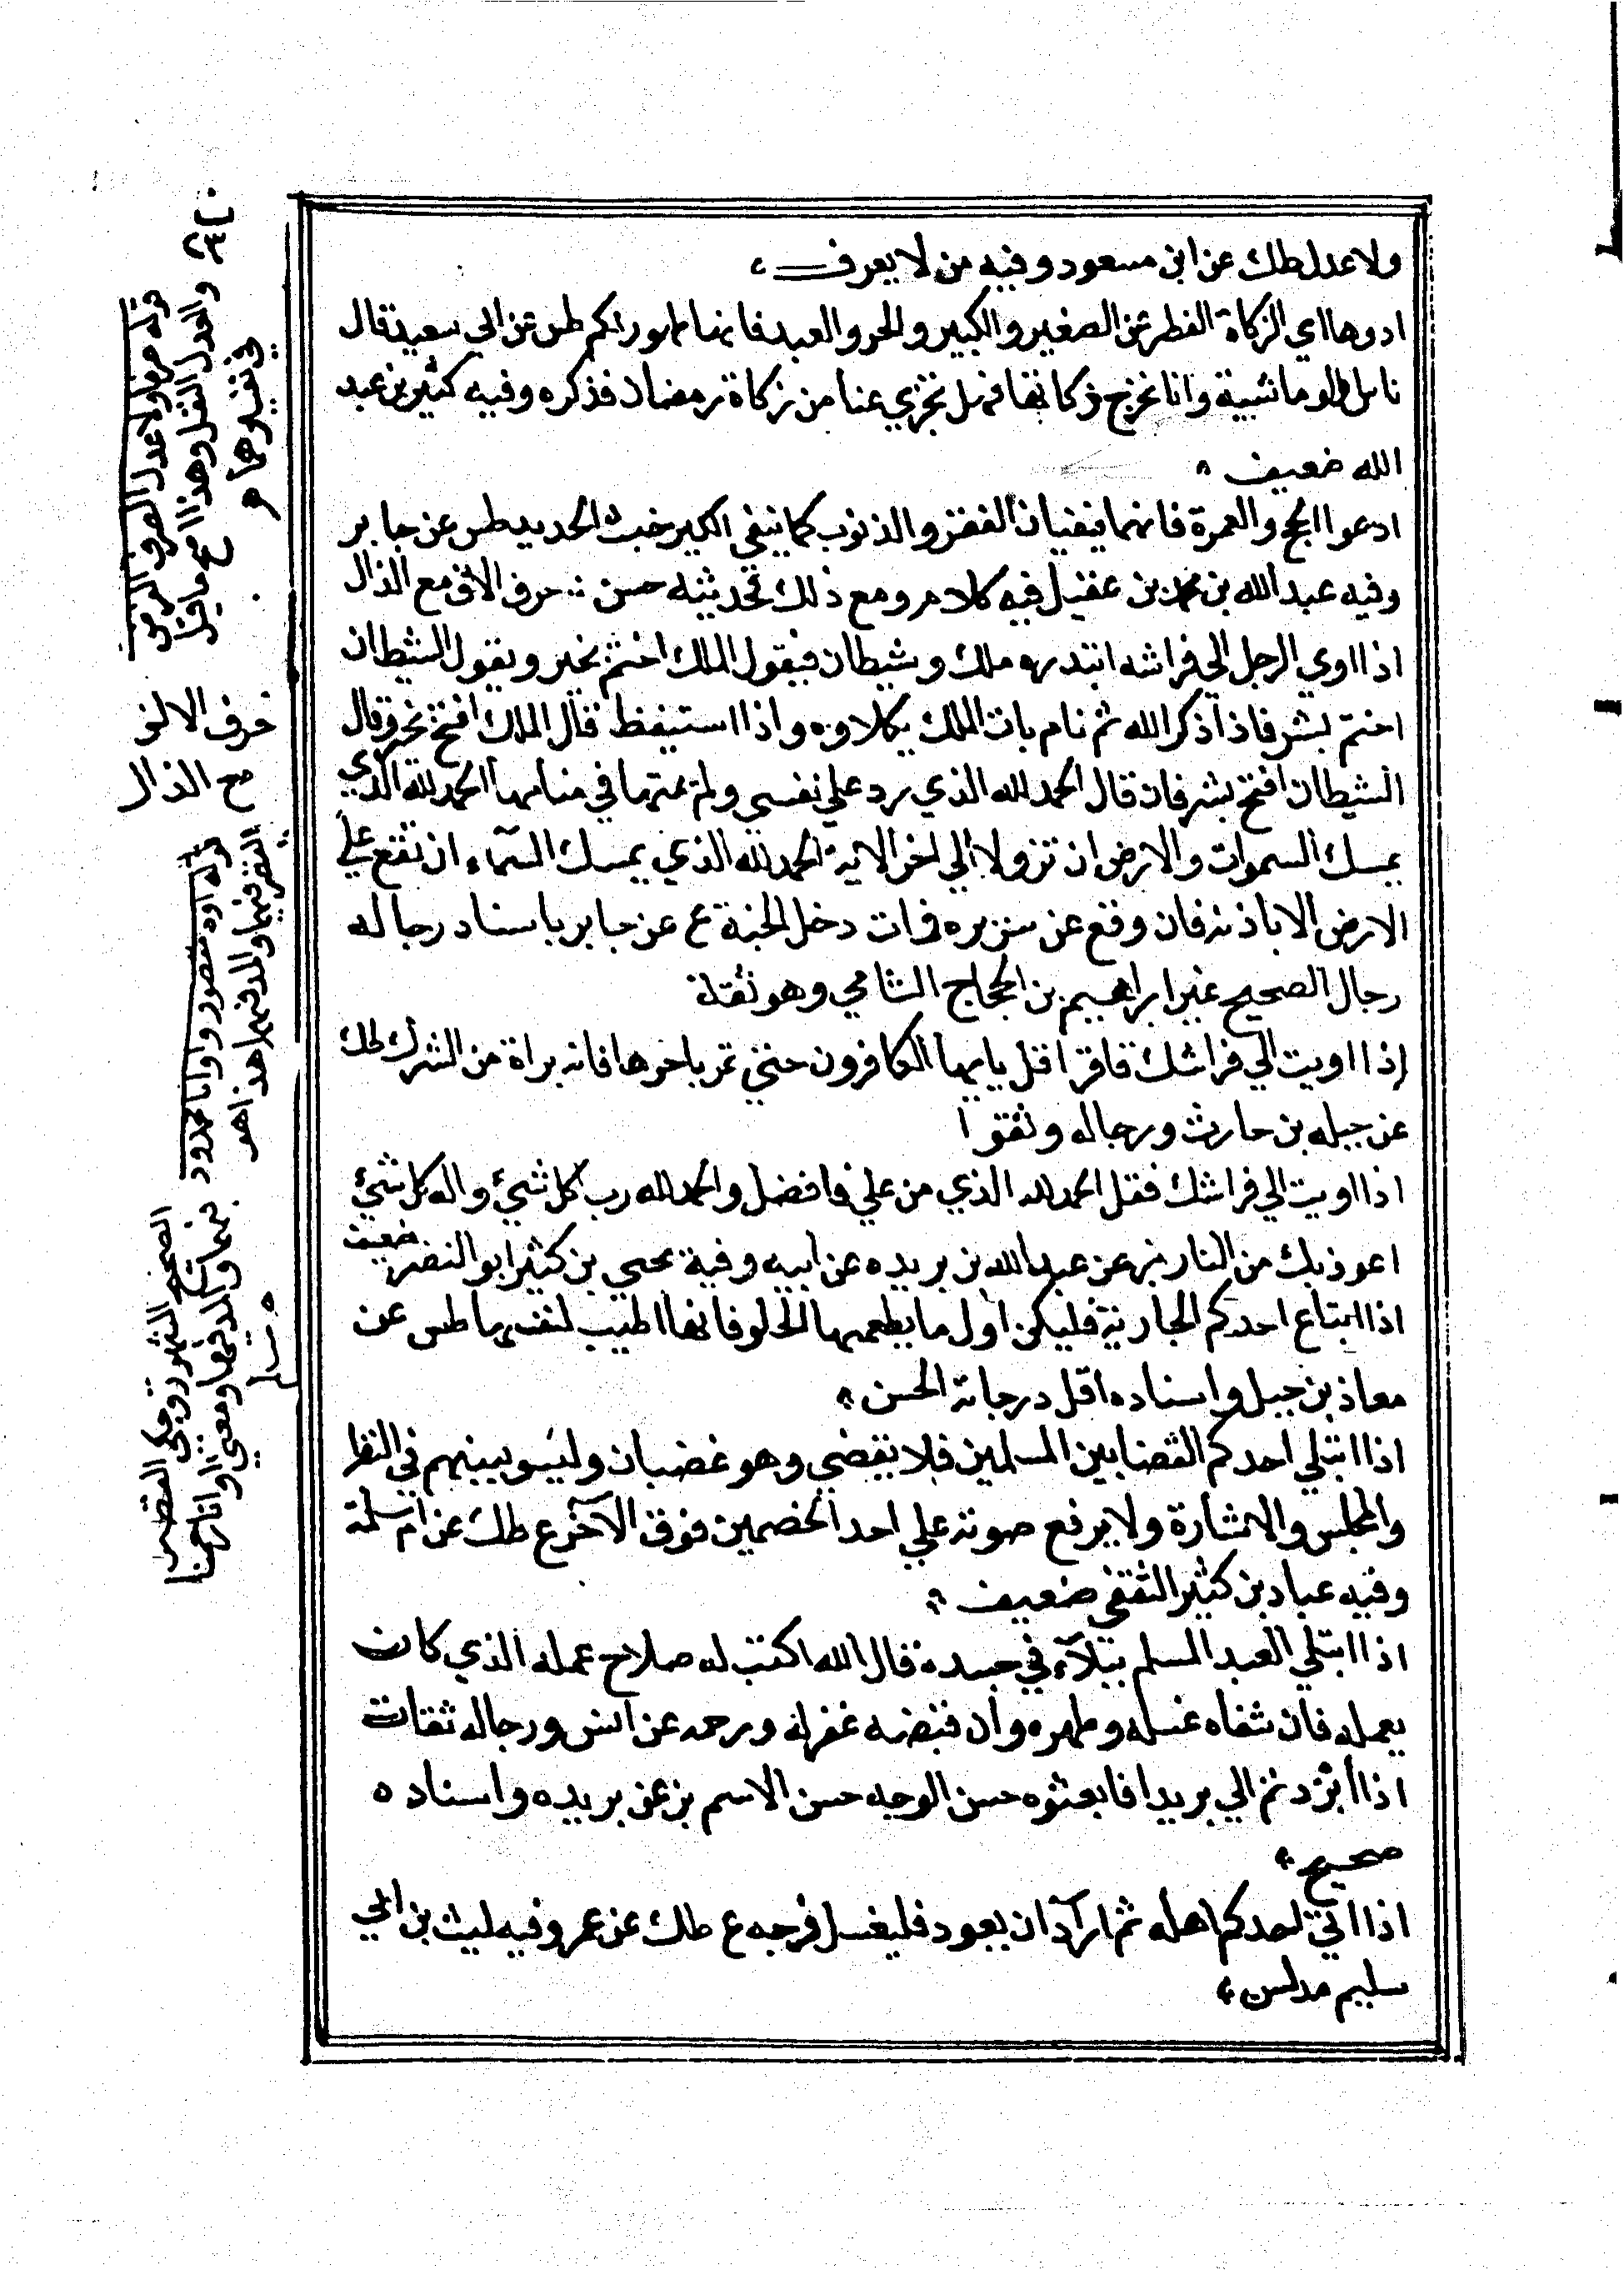 ولا عدل طك عن ابي مسعود وفيه من لا يعرف
ادوها اي الزكاة الفطر عن الصغير والكبير والحر والعبد فانها طهور لكم طس عن ابي سعيد قال
ناس اولو ماشية وانا نخرج زكاتها فهل تجزي عنا من زكاة رمضان فذكره وفيه كثير بن عبد
الله ضعيف
ادعوا الحج والعمرة فانهما ينفيان الفقر والذنوب كما ينفي الكير خبث الحديد طس عن جابر
وفيه عبد الله بن محمد بن عقيل فيه كلام ومع ذلك تحديثه حسن حرف الالف مع الذال
اذا اوي الرجل الي فراشه ابتدره ملك وشيطان فيقول الملك اختم بخير ويقول الشيطان
اختم بشر فاذا ذكر الله ثم نام بات الملك يكلاوه واذا استيقظ قال الملك افتح بخير وقال
الشيطان افتح بشر فان قال الحمد لله الذي رد علي نفسي ولم يمتها في منامها الحمد لله الذي
يمسك السموات والارض ان تزولا الي اخر الاية الحمد لله الذي يمسك السماء ان تقع علي
الارض الا باذنه فان وقع عن سريره فمات دخل الجنة ع عن جابر باسناد رجاله
رجال الصحيح غير ابراهيم بن الحجاج الشامي وهو ثقة
اذا اويت الي فراشك فاقرا قل يايها الكافرون حتي تمر باخرها فانه براة من الشرك طك
عن جبله بن حارث ورجاله وثقوا
اذا اويت الي فراشك فقل الحمد لله الذي من علي فافضل والحمد لله رب كل شيء واله كل شيء
اعوذ بك من النار بز عن عبد الله بن بريده عن ابيه وفيه يحيي بن كثير ابو النضر ضعيف
اذا ابتاع احدكم الجارية فليكن اول ما يطعمها الحلو فانها اطيب لنفسها طس عن
معاذ بن جبل واسناده اقل درجاته الحسن
اذا ابتلي احدكم القضا بين المسلمين فلا يقضي وهو غضبان وليسو بينهم في النظر
والمجلس والاشارة ولا يرفع صوته علي احد الخصمين فوق الآخر ع طك عن ام سلمة
وفيه عباد بن كثير الثقفي ضعيف
اذا ابتلي العبد المسلم ببلاء في جسده قال الله اكتب له صلاح عمله الذي كان
يعمله فان شفاه غسله وطهره وان قبضه غفر له ورحمه عن انس ورجاله ثقات
اذا أبردتم الي بريدا فابعثوه حسن الوجه حسن الاسم بز عن بريده واسناده
صحيح
اذا اتي احدكم اهله ثم اراد ان يعود فليغسل فرجه ع طك عن عمر وفيه ليث بن ابي
سليم مدلس
قوله صرفا ولا عدلا الصرف الفرض
والعدل النفل وهذا اصح ما قيل
في تفسيرهما م
حرف الالف
مع الذال
قوله اوى مقصور واوانا ممدود
القصر فيهما والمد فيهما هذا هو
الصحيح المشهور وحكي القصر
فيهما والمد فيهما ومعني اوانا رحمنا